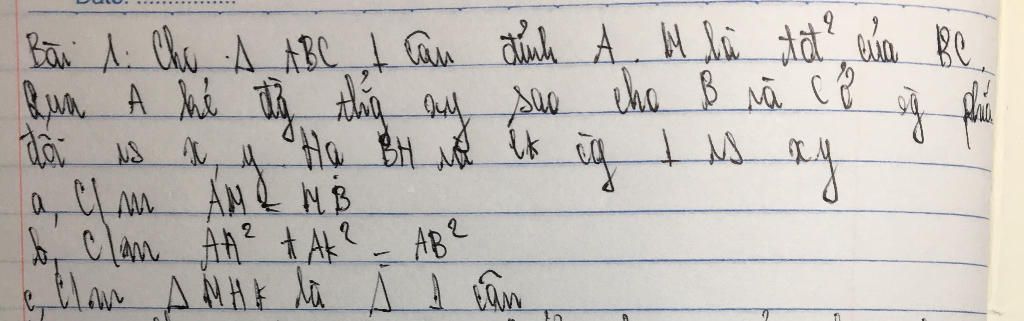 Bài 1: Cho Δ ABC ⊥ cân đỉnh A. M là tđ² của BC.
Qua A kẻ đg thẳg xy sao cho B và C ở cg phía
đối vs x, y. Hạ BH và CK cg ⊥ vs xy
a, C/m AM = MB
b, C/m AH² + AK² = AB²
c, C/m Δ MHK là Δ ⊥ cân